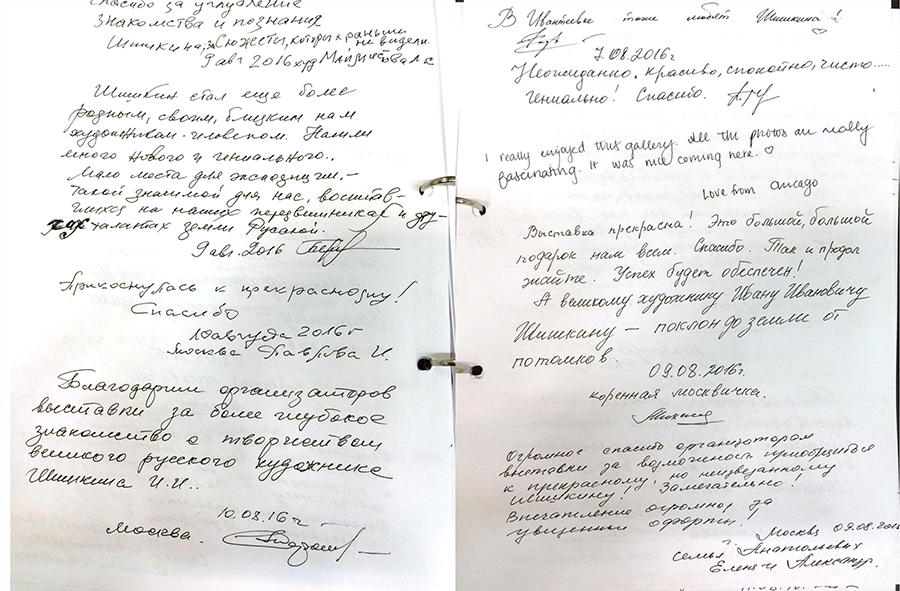 Спасибо за углубление
знакомства и познания
Шишкина, за сюжеты, которых раньше
не видели.
9 авг 2016 худ
Шишкин стал еще более
родным, своим, близким нам
художником-человеком. Нашли
много нового и гениального..
Мало места для экспозиции,-
такой значимой для нас, воспитав-
шихся на наших передвижниках и дру-
гих талантах земли Русской.
9 авг. 2016
Прикоснулась к прекрасному!
Спасибо
10 августа 2016 г
Москва Павлова И.
Благодарим организаторов
выставки за более глубокое
знакомство с творчеством
великого русского художника
Шишкина И.И..
10.08.16 г
Москва.
В Ивантеевке тоже любят Шишкина!
7.08.2016 г
Неожиданно, красиво, спокойно, чисто.....
Гениально! Спасибо.
I really enjoyed this gallery. All the photos are really
fascinating. It was nice coming here. ♡
Love from Chicago
Выставка прекрасна! Это большой, большой
подарок нам всем. Спасибо. Так и продол
жайте. Успех будет обеспечен!
А великому художнику Ивану Ивановичу
Шишкину — поклон до земли от
потомков.
09.08.2016 г.
коренная москвичка.
Огромное спасибо организаторам
выставки за возможность приобщиться
к прекрасному, но неизведанному
Шишкину! Замечательно!
Впечатление огромное от
увиденных офортов!
Москва 09.08.2016
семья Анатольевич
Елена и Александр.